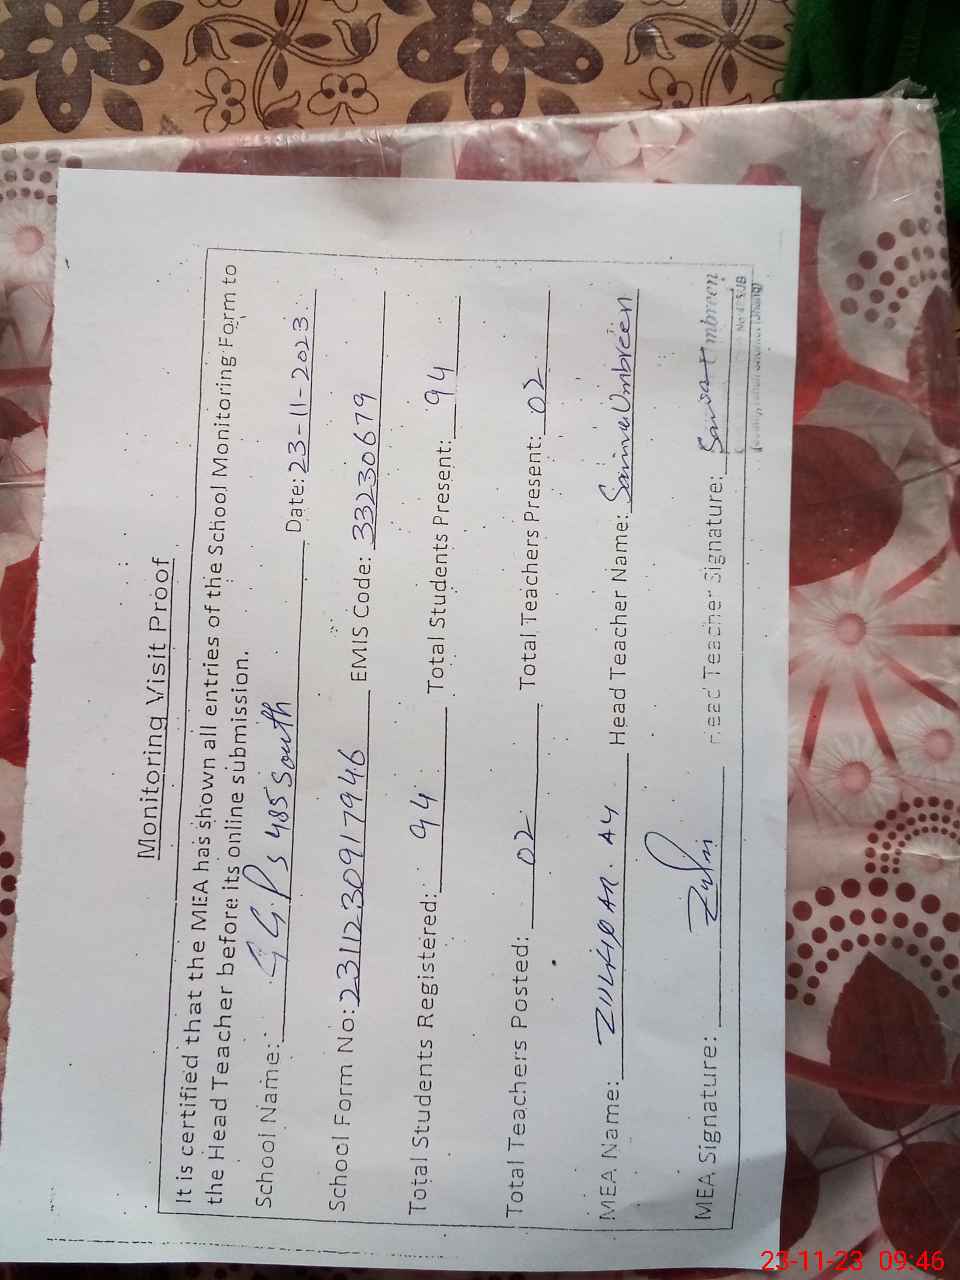 Monitoring Visit Proof
It is certified that the MEA has shown all entries of the School Monitoring Form to
the Head Teacher before its online submission.
School Name: G G.P.S 485 South Date: 23-11-2023.
School Form No: 2311230917946 EMIS Code: 33230679
Total Students Registered: 94 Total Students Present: 94
Total Teachers Posted: 02 Total Teachers Present: 02
MEA Name: ZULFIQAR. Ay Head Teacher Name: Saima Umbreen
MEA Signature: Head Teacher Signature: Umbreen
23-11-23 09:46